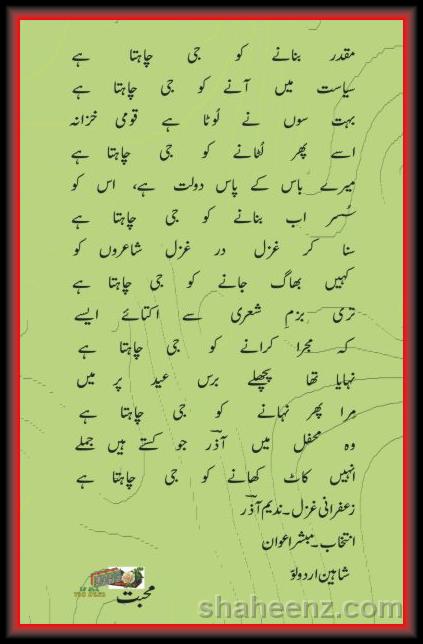 مقدر بنانے کو جی چاہتا ہے
سیاست میں آنے کو جی چاہتا ہے
بہت سوں نے لُوٹا ہے قومی خزانہ
اسے پھر لٹانے کو جی چاہتا ہے
میرے باس کے پاس دولت ہے، اس کو
سُسر اب بنانے کو جی چاہتا ہے
سنا کر غزل در غزل شاعروں کو
کہیں بھاگ جانے کو جی چاہتا ہے
تری بزمِ شعری سے اکتائے ایسے
کہ مجرا کرانے کو جی چاہتا ہے
نہایا تھا پچھلے برس عید پر میں
مِرا پھر نہانے کو جی چاہتا ہے
وہ محفل میں آذر جو کستے ہیں جملے
انہیں کاٹ کھانے کو جی چاہتا ہے
زعفرانی غزل۔ندیم آذر
انتخاب۔مبشر اعوان
شاہین اردو لَوّ
محبت
shaheenz.com